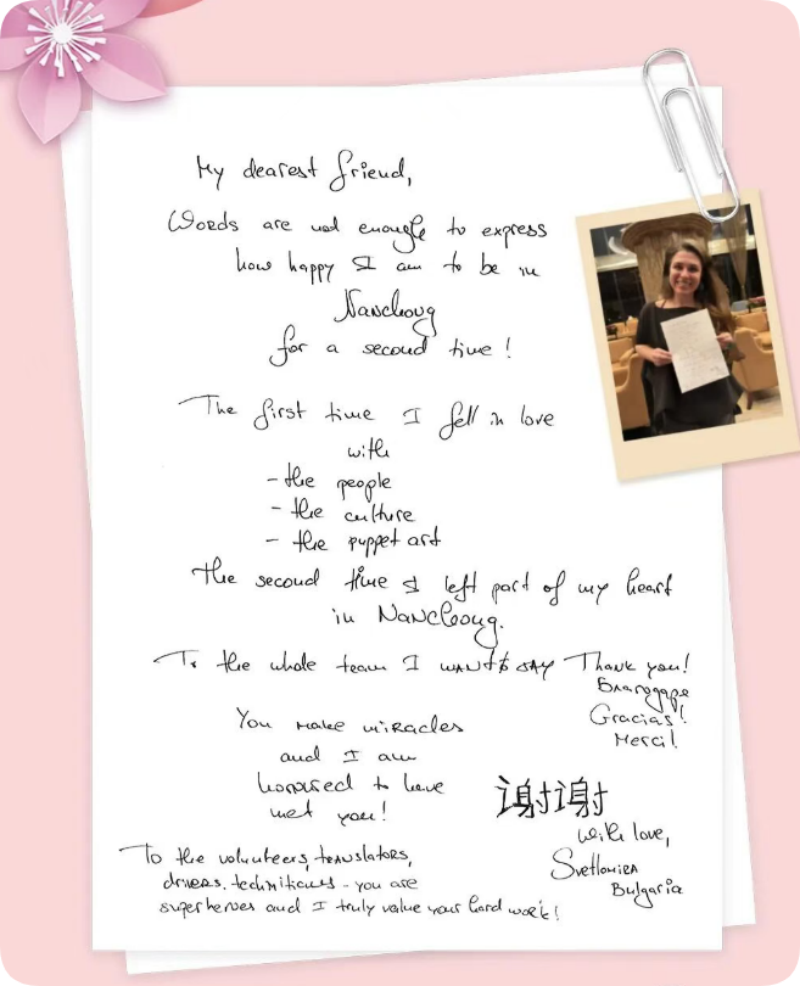 My dearest friend,
Words are not enough to express
how happy I am to be in
Nanchong
for a second time!
The first time I fell in love
with
- the people
- the culture
- the puppet art
The second time I left part of my heart
in Nanchong.
To the whole team I WANT to SAY Thank you!
Благодаря
Gracias!
Merci!
You make miracles
and I am
honored to have
met you!
谢谢
With love,
Svetlomira
Bulgaria
To the volunteers, translators,
drivers, technitians - you are
superheroes and I truly value your hard work!